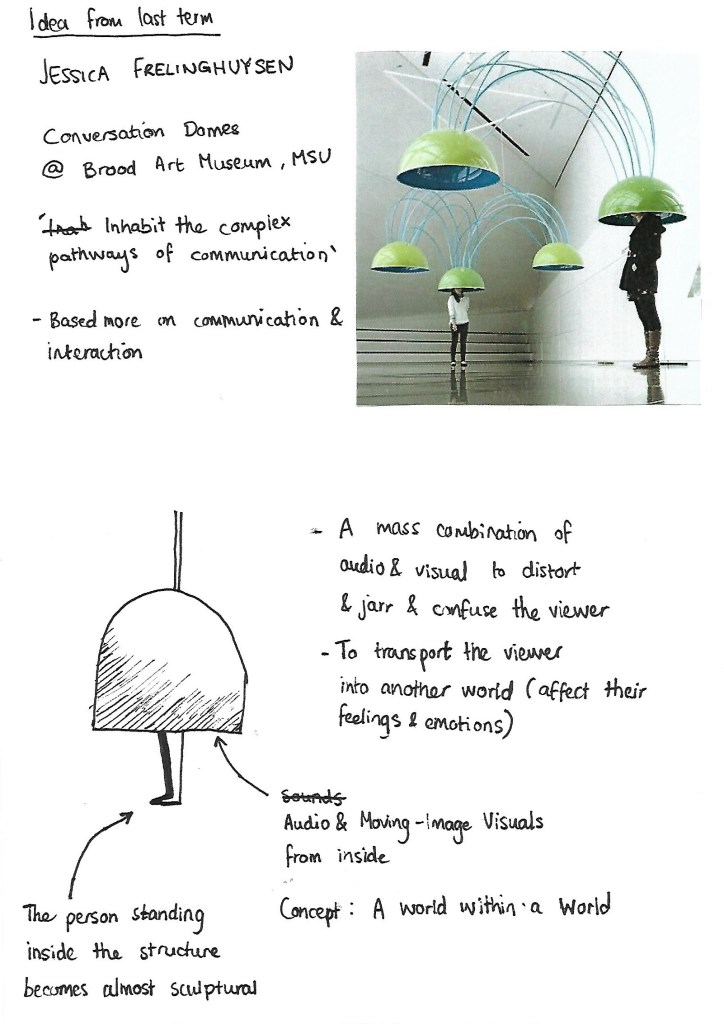 Idea from last term
JESSICA FRELINGHUYSEN
Conversation Domes
@ Brood Art Museum, MSU
' Inhabit the complex
pathways of communication'
- Based more on communication &
interaction
- A mass combination of
audio & visual to distort
& jarr & confuse the viewer
- To transport the viewer
into another world (affect their
feelings & emotions)
Sounds
Audio & Moving-Image Visuals
from inside
Concept: A world within a World
The person standing
inside the structure
becomes almost sculptural